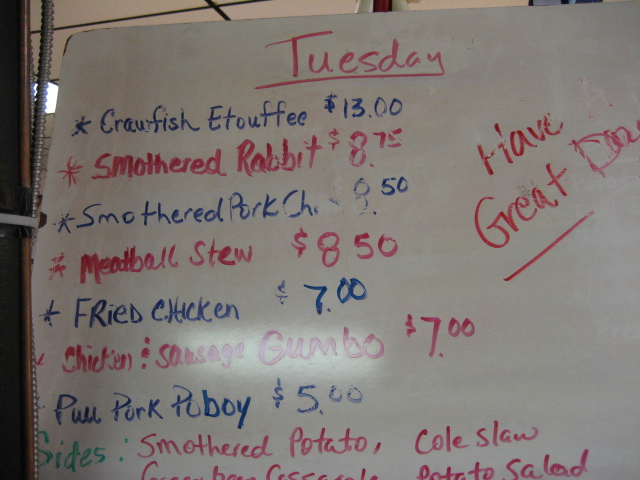 Tuesday
* Crawfish Etouffee $13.00
* Smothered Rabbit $8.75
* Smothered Pork Ch. 50
* Meatball Stew $8.50
* FRied CHicken $7.00
Chicken & Sausage Gumbo $7.00
Pull Pork Poboy $5.00
Sides: Smothered Potato, Cole Slaw
Potato Salad
Have
Great Day